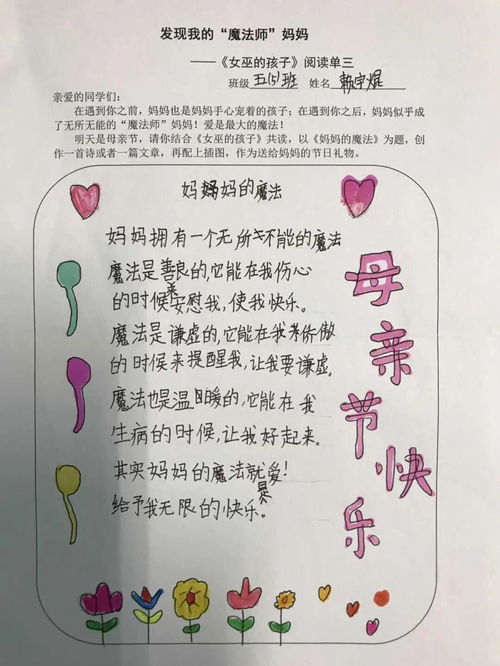 发现我的“魔法师”妈妈
——《女巫的孩子》阅读单三
班级 五(5)班 姓名 赖宇焜
亲爱的同学们：
在遇到你之前，妈妈也是妈妈手心宠着的孩子；在遇到你之后，妈妈似乎成
了无所无能的“魔法师”妈妈！爱是最大的魔法！
明天是母亲节，请你结合《女巫的孩子》共读，以《妈妈的魔法》为题，创
作一首诗或者一篇文章，再配上插图，作为送给妈妈的节日礼物。
妈妈的魔法
妈妈拥有一个无所不能的魔法
魔法是善良的，它能在我伤心
的时候来安慰我，使我快乐。
魔法是谦虚的，它能在我骄傲
的时候来提醒我，让我要谦虚。
魔法也是温暖的，它能在我
生病的时候，让我好起来。
其实妈妈的魔法就是爱！
给予我无限的快乐。
母亲节快乐